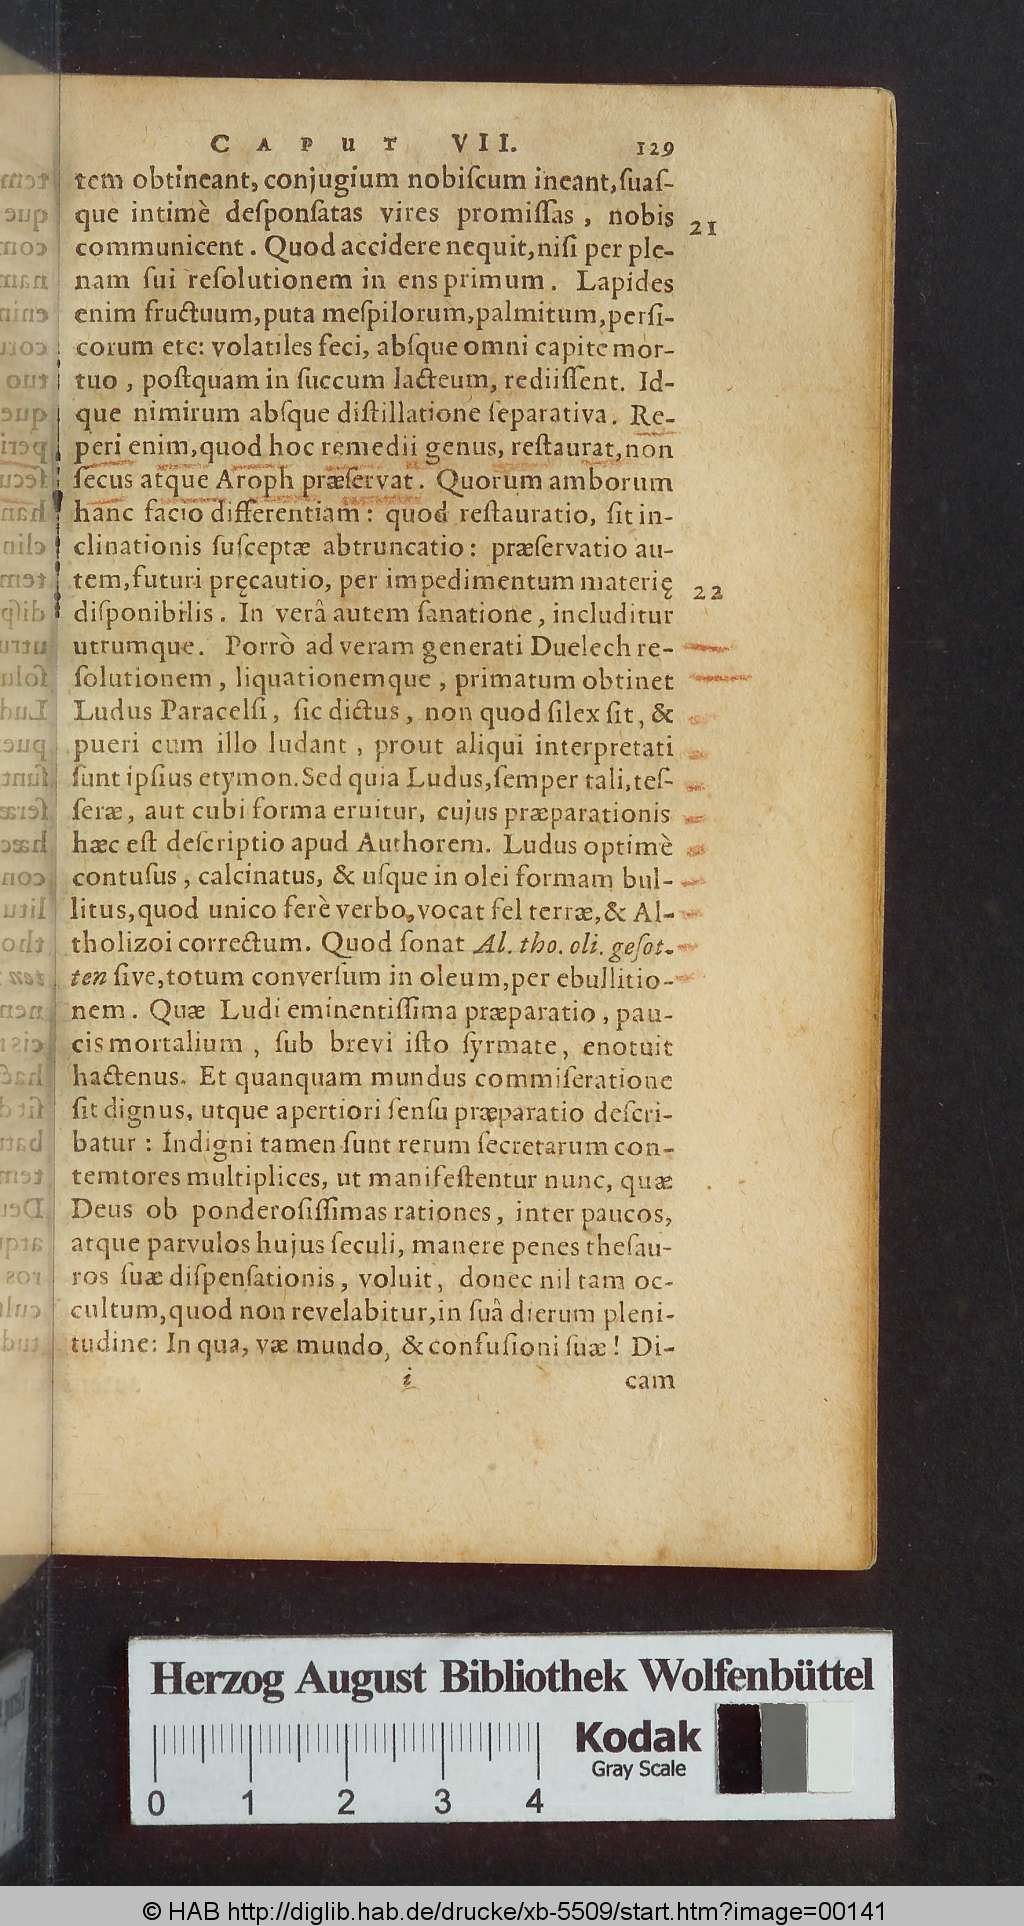 CAPUT VII. 129
tem obtineant, conjugium nobiſcum ineant, ſuaſ-
que intimè deſponſatas vires promiſſas, nobis 21
communicent. Quod accidere nequit, niſi per ple-
nam ſui reſolutionem in ens primum. Lapides
enim fructuum, puta meſpilorum, palmitum, perſi-
corum etc: volatiles feci, abſque omni capite mor-
tuo, poſtquam in ſuccum lacteum, rediiſſent. Id-
que nimirum abſque diſtillatione ſeparativa. Re-
peri enim, quod hoc remedii genus, reſtaurat, non
ſecus atque Aroph præſervat. Quorum amborum
hanc facio differentiam: quod reſtauratio, ſit in-
clinationis ſuſceptæ abtruncatio: præſervatio au-
tem, futuri pręcautio, per impedimentum materię 22
diſponibilis. In verâ autem ſanatione, includitur
utrumque. Porrò ad veram generati Duelech re-
ſolutionem, liquationemque, primatum obtinet
Ludus Paracelſi, ſic dictus, non quod ſilex ſit, &
pueri cum illo ludant, prout aliqui interpretati
ſunt ipſius etymon. Sed quia Ludus, ſemper tali, teſ-
ſeræ, aut cubi forma eruitur, cujus præparationis
hæc eſt deſcriptio apud Authorem. Ludus optimè
contuſus, calcinatus, & uſque in olei formam bul-
litus, quod unico ferè verbo, vocat fel terræ, & Al-
tholizoi correctum. Quod ſonat Al. tho. oli. geſot-
ten ſive, totum converſum in oleum, per ebullitio-
nem. Quæ Ludi eminentiſſima præparatio, pau-
cis mortalium, ſub brevi iſto ſyrmate, enotuit
hactenus. Et quanquam mundus commiſeratione
ſit dignus, utque apertiori ſenſu præparatio deſcri-
batur: Indigni tamen ſunt rerum ſecretarum con-
temtores multiplices, ut manifeſtentur nunc, quæ
Deus ob ponderoſiſſimas rationes, inter paucos,
atque parvulos hujus ſeculi, manere penes theſau-
ros ſuæ diſpenſationis, voluit, donec nil tam oc-
cultum, quod non revelabitur, in ſuâ dierum pleni-
tudine: In qua, væ mundo, & confuſioni ſuæ! Di-
i cam
Herzog August Bibliothek Wolfenbüttel
Kodak
Gray Scale
0 1 2 3 4
© HAB http://diglib.hab.de/drucke/xb-5509/start.htm?image=00141